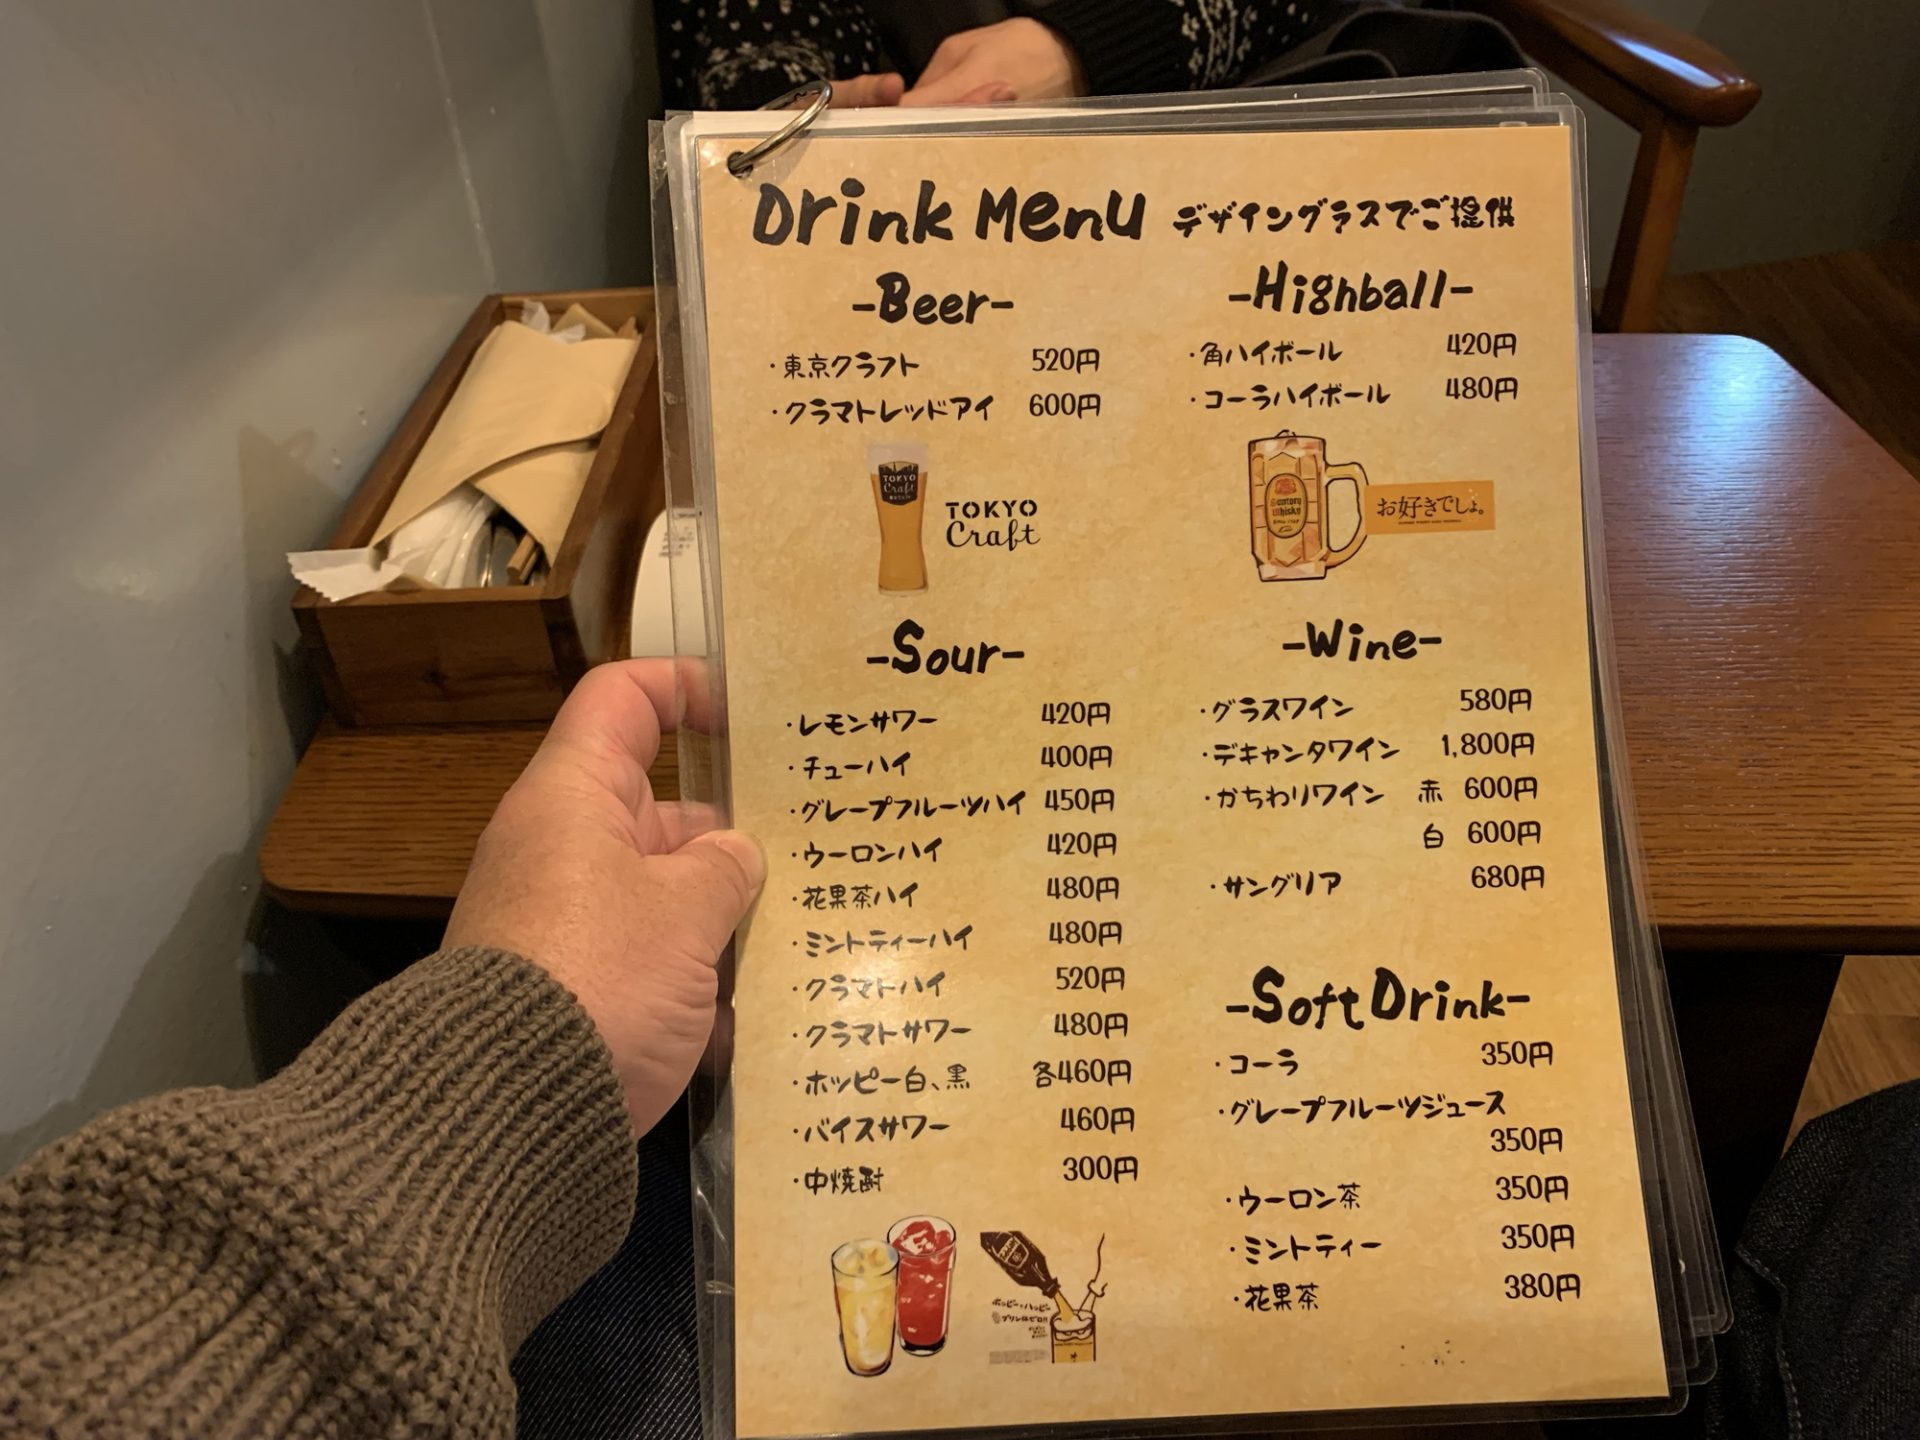 Drink Menu デザイングラスでご提供
-Beer-
・東京クラフト 520円
・クラマトレッドアイ 600円
TOKYO
Craft
TOKYO
Craft
-Highball-
・角ハイボール 420円
・コーラハイボール 480円
Suntory
Whisky
お好きでしょ。
-Sour-
・レモンサワー 420円
・チューハイ 400円
・グレープフルーツハイ 450円
・ウーロンハイ 420円
・花果茶ハイ 480円
・ミントティーハイ 480円
・クラマトハイ 520円
・クラマトサワー 480円
・ホッピー白、黒 各460円
・バイスサワー 460円
・中焼酎 300円
ホッピーでハッピー
プリン体ゼロ!!
-Wine-
・グラスワイン 580円
・デキャンタワイン 1,800円
・かちわりワイン 赤 600円
白 600円
・サングリア 680円
-Soft Drink-
・コーラ 350円
・グレープフルーツジュース
350円
・ウーロン茶 350円
・ミントティー 350円
・花果茶 380円